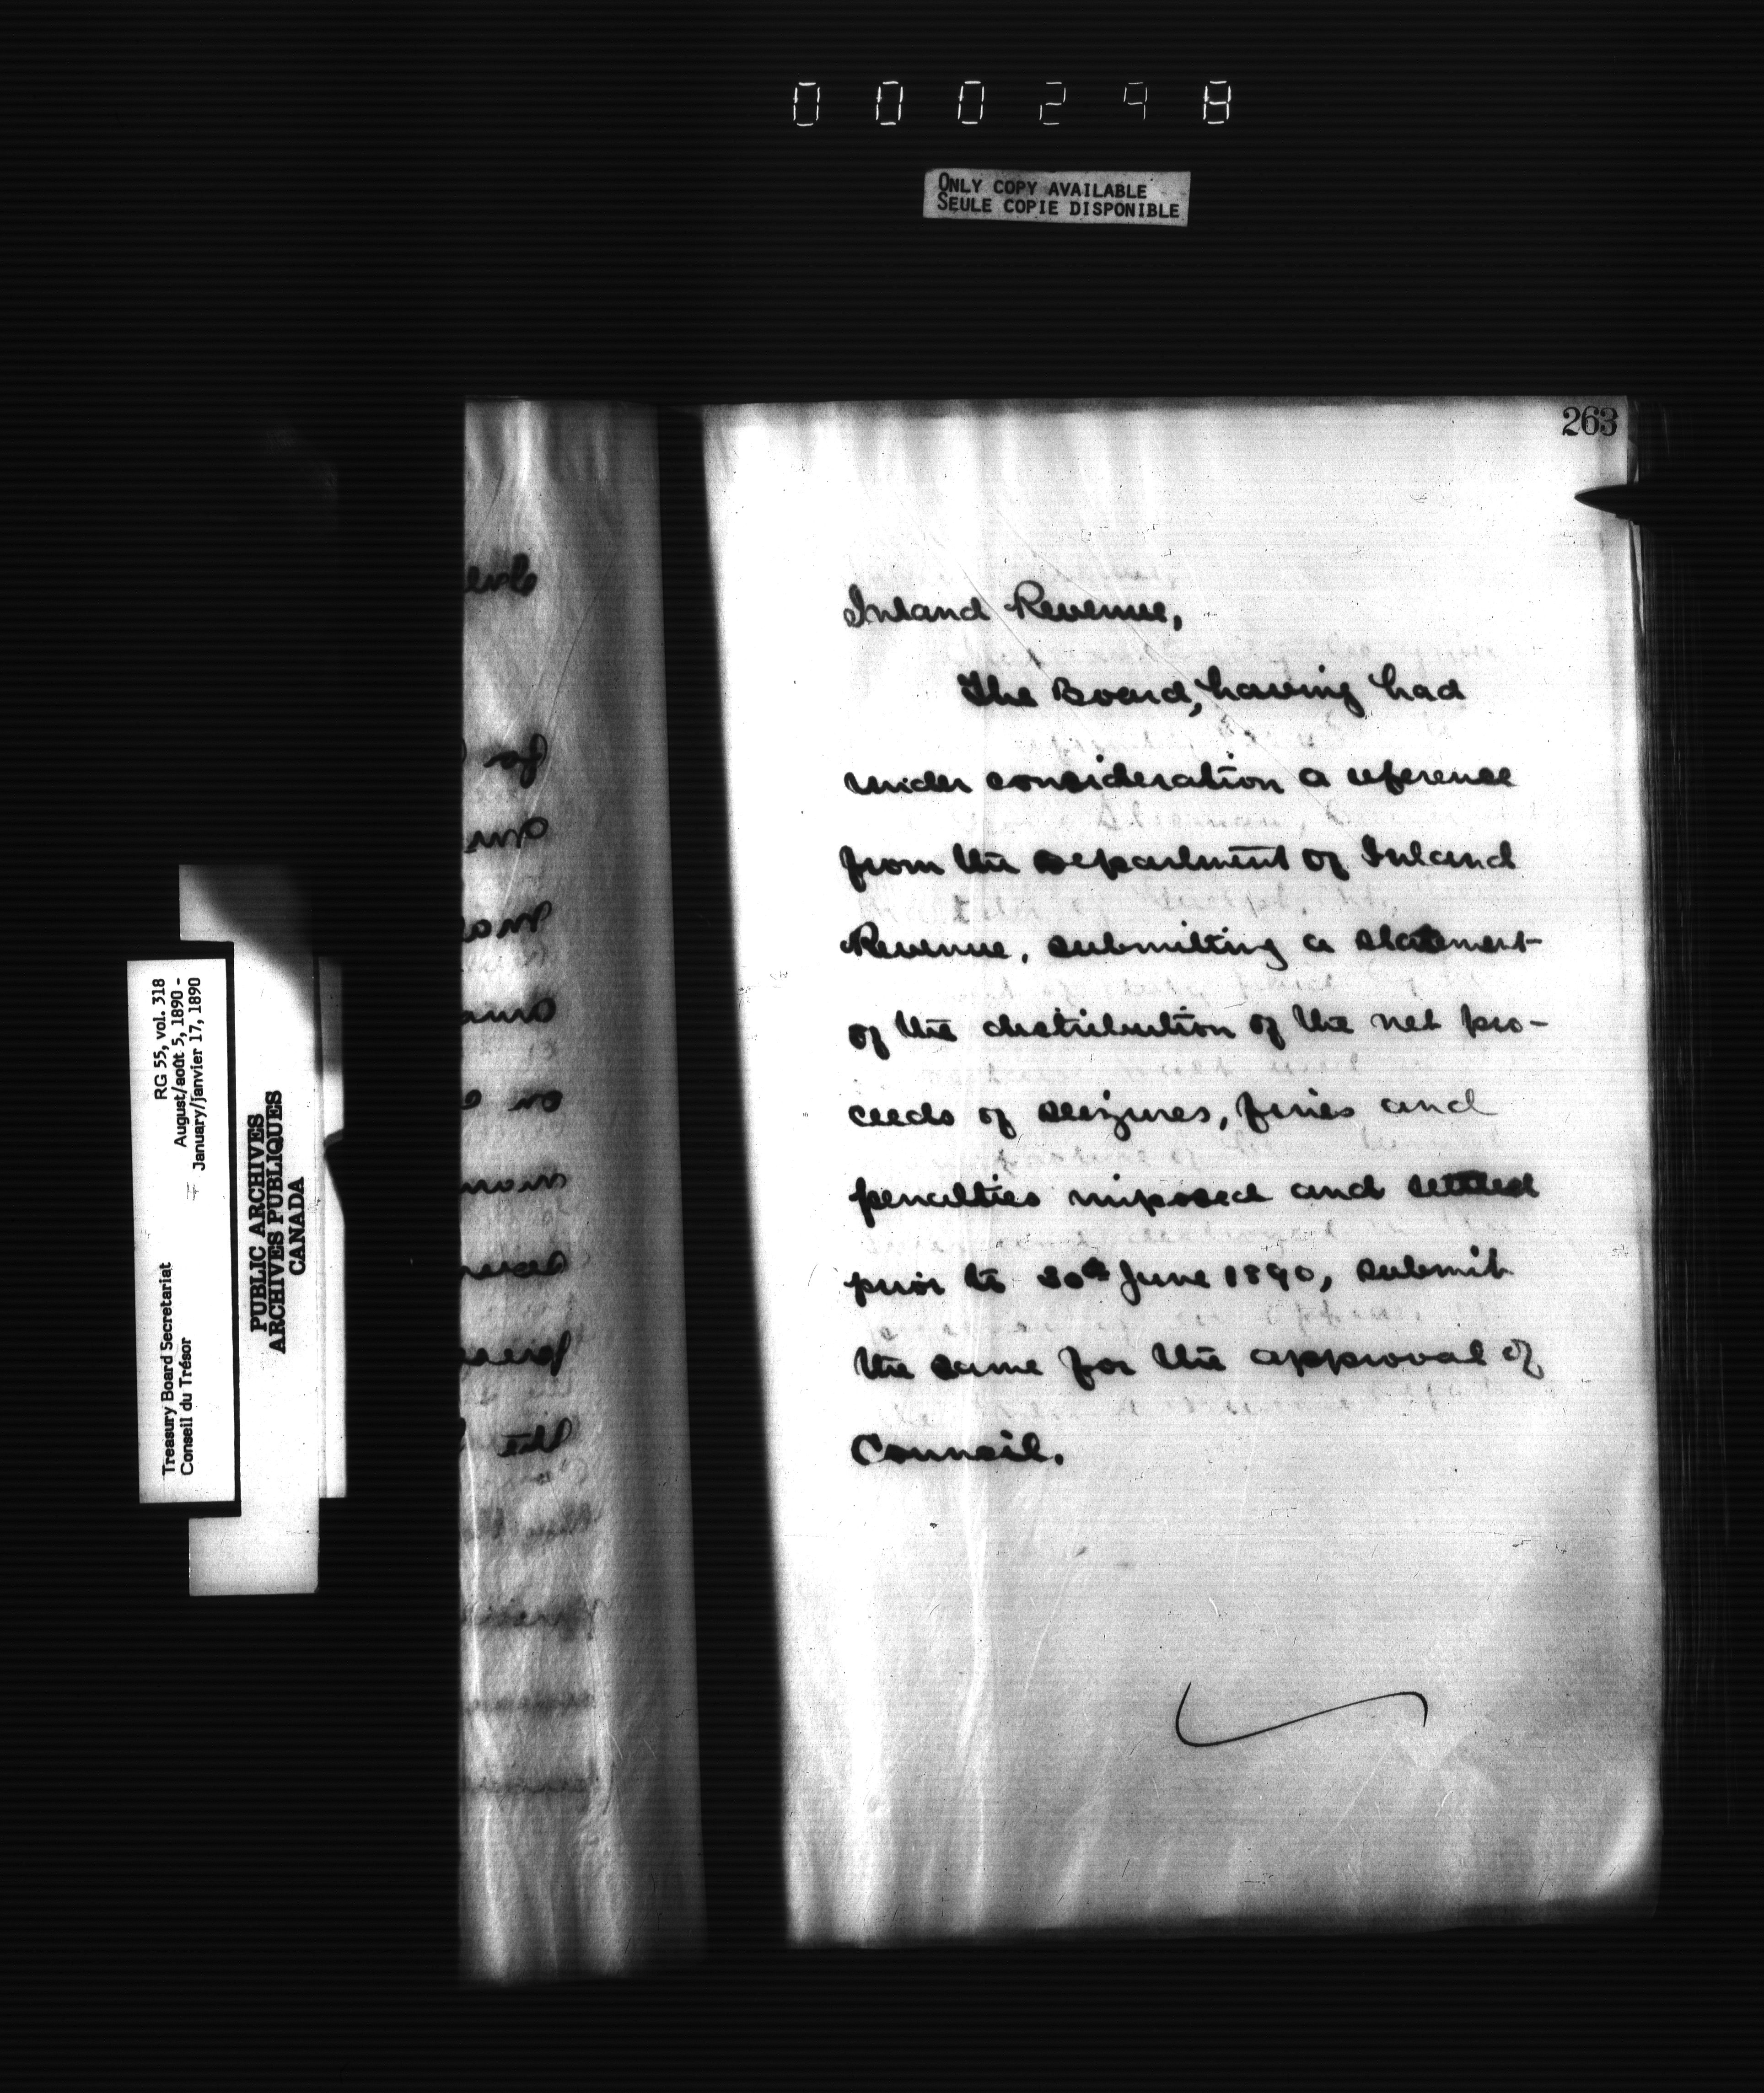 000298
ONLY COPY AVAILABLE
SEULE COPIE DISPONIBLE
263
Inland Revenue,
The Board, having had
under consideration a reference
from the Department of Inland
Revenue, submitting a statement
of the distribution of the net pro-
ceeds of seizures, fines and
penalties imposed and settled
prior to 30th June 1890, submit
the same for the approval of
Council.
Treasury Board Secretariat
Conseil du Trésor
RG 55, vol. 318
August/août 5, 1890 -
January/janvier 17, 1890
PUBLIC ARCHIVES
ARCHIVES PUBLIQUES
CANADA